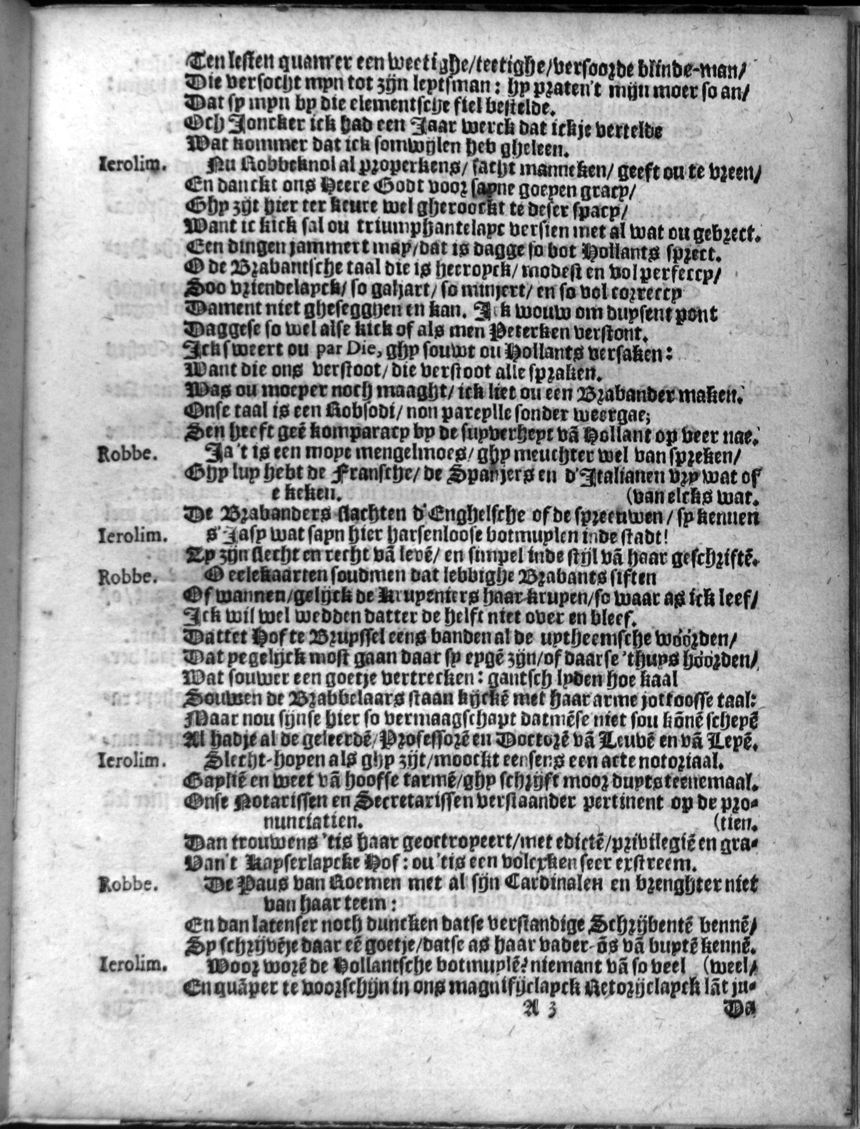 Ten lesten quam'er een weetighe/teetighe/versoorde blinde-man/
Die versocht myn tot zijn leytsman: hy praten't mijn moer so an/
Dat sy myn by die clementsche fiel bestelde.
Och Joncker ick had een Jaar werck dat ickje vertelde
Wat kommer dat ick somwylen heb gheleen.
Ierolim. Nu Robbeknol al properkens/ sacht manneken/ geeft ou te vreen/
En danckt ons Heere Godt voor sayne goeyen gracy/
Ghy zijt hier ter keure wel gheroockt te deser spacy/
Want ic kick sal ou triumphantelayc versien met al wat ou gebrect.
Een dingen jammert may/dat is dagge so bot Hollants sprect.
O de Brabantsche taal die is heeroyck/ modest en vol perfeccy/
Soo vriendelayck/ so galjart/ so minjert/ en so vol correccy
Dament niet gheseggyen en kan. Ick wouw om duysent pont
Daggese so wel alse kick of als men Peterken verstont.
Ick sweert ou par Die, ghy souwt ou Hollants versaken:
Want die ons verstoot/ die verstoot alle spraken.
Was ou moeyer noch maaght/ ick liet ou een Brabander maken.
Onse taal is een Robsodi/ non pareylle sonder weergae;
Sen heeft geē komparacy by de suyverheyt vā Hollant op veer nae.
Robbe. Ja't is een moye mengelmoes/ ghy meuchter wel van spreken/
Ghy luy hebt de Fransche/ de Spanjers en d'Italianen vry wat of
e keken. (van elcks wat.
De Brabanders slachten d'Enghelsche of de spreenwen/ sy kennen
Ierolim. s'Jasy wat sayn hier harsenloose botmuylen inde stadt!
Ty zijn slecht en recht vā levē/ en simpel inde stijl vā haar geschriftē.
Robbe. O eelekaarten soudmen dat lebbighe Brabants siften
Of wannen/gelijck de Kruyeniers haar kruyen/so waar as ick leef/
Ick wil wel wedden datter de helft niet over en bleef.
Dattet Hof te Bruyssel eens banden al de uytheemsche wóórden/
Dat yegelijck most gaan daar sy eygē zijn/of daarse 'thuys hóórden/
Wat souwer een goetje vertrecken: gantsch lyden hoe kaal
Souwen de Brabbelaars staan kijckē met haar arme jottoosse taal:
Maar nou sijnse hier so vermaagschapt datmēse niet sou kōnē scheyē
Al hadje al de geleerdē/Professorē en Doctorē vā Leuvē en vā Leyē.
Ierolim. Slecht-hopen als ghy zijt/ moockt eensens een acte notoriaal.
Gayliē en weet vā hoofse tarmē/ghy schrijft moor duyts teenemaal.
Onse Notarissen en Secretarissen verstaander pertinent op de pro-
nunciatien. (tien.
Dan trouwens 'tis haar geoctroyeert/met edictē/privilegiē en gra-
Van't Kayserlaycke Hof: ou 'tis een volcxken seer exstreem.
Robbe. De Paus van Roemen met al sijn Cardinalen en brenghter niet
van haar teem:
En dan latenser noch duncken datse verstandige Schrijbentē bennē/
Sy schrijvēje daar eē goetje/datse as haar vader-ōs vā buytē kennē.
Ierolim. Woor worē de Hollantsche botmuylē? niemant vā so veel (weel/
En quāper te voorschijn in ons magnifijclayck Retorijclayck lāt ju-
A 3 Da